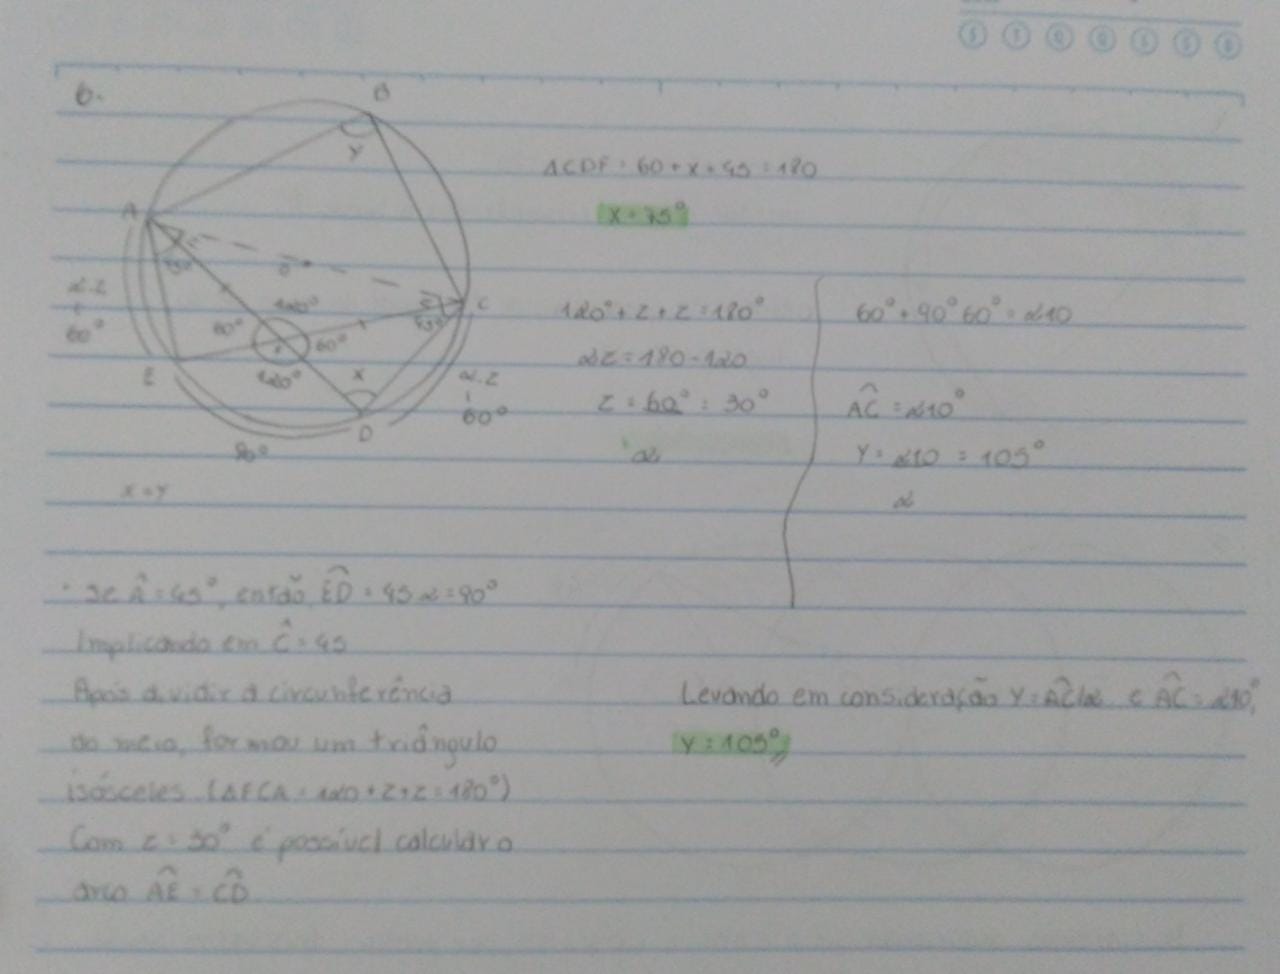 S T Q Q S S D
6.
B
Y
ΔCDF = 60 + x + 45 = 180
x = 75°
A
45°
O
C
120°
60°
60°
45°
2.z
60°
120°
x
E
D
2.z
60°
90°
x = y
120° + z + z = 180°
2z = 180 - 120
z = 60° = 30°
2
60° + 90° 60° = 210
AC = 210°
Y = 210 = 105°
2
· Se Â = 45°, então ED = 45 2 = 90°
Implicando em Ĉ = 45
Após dividir a circunferência
do meio, formou um triângulo
isósceles (ΔFCA = 120 + z + z = 180°)
Com z = 30° é possível calcular o
arco AE = CD
Levando em consideração Y = AC/2 e AC = 210°,
Y = 105°//